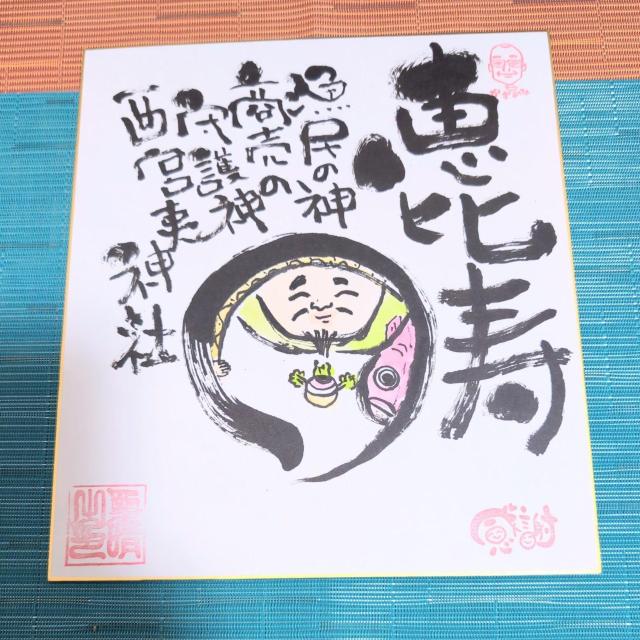 恵比寿
漁民の神
商売の
守護神
西宮東神社
感謝